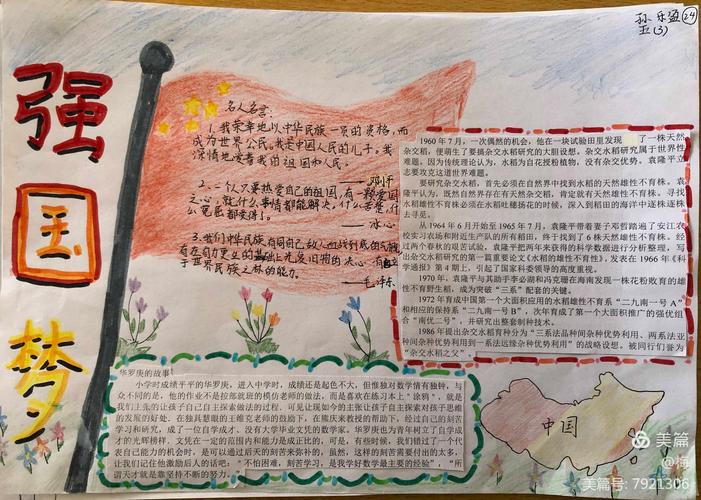 孙乐盈 24
五(3)
强
国
梦
名人名言:
1.我荣幸地以中华民族一员的资格,而
成为世界公民。我是中国人民的儿子,我
深情地爱着我的祖国和人民。
——邓小平
2.一个人只要热爱自己的祖国,有一颗爱国
之心,就什么事情都能解决,什么苦楚,什
么冤屈都受得了。
——冰心
3.我们中华民族有同自己敌人血战到底的气概,
有在自力更生的基础上光复旧物的决心,有自立
于世界民族之林的能力。
——毛泽东
1960年7月,一次偶然的机会,他在一块试验田里发现 了一株天然
杂交稻,便萌生了要搞杂交水稻研究的大胆设想。杂交水稻研究属于世界性
难题。因为传统理论认为,水稻为自花授粉植物,没有杂交优势。袁隆平立
志要攻克这道世界难题。
要研究杂交水稻,首先必须在自然界中找到水稻的天然雄性不育株。袁隆平
认为,既然自然界存在有天然杂交稻,肯定就有天然雄性不育株。寻找
水稻雄性不育株必须在水稻吐穗扬花的时候,深入到稻田的海洋中逐株逐株
去寻觅。
从1964年6月开始至1965年7月,袁隆平带着妻子邓哲踏遍了安江农
校实习农场和附近生产队的所有稻田,终于找到了6株天然雄性不育株。经
过两个春秋的艰苦试验,袁隆平把两年来获得的科学数据进行分析整理,写
出杂交水稻研究的第一篇重要论文《水稻的雄性不育性》,发表在1966年《科
学通报》第4期上,引起了国家科委领导的高度重视。
1970年,袁隆平与其助手李必湖和冯克珊在海南发现一株花粉败育的雄
性不育野生稻,成为突破“三系”配套的关键。
1972年育成中国第一个大面积应用的水稻雄性不育系“二九南一号A”
和相应的保持系“二九南一号B”,次年育成了第一个大面积推广的强优组合
“南优二号”,并研究出整套制种技术。
1986年提出杂交育种分为“三系法品种间杂种优势利用、两系法亚
种间杂种优势利用到一系法远缘杂种优势利用”的战略设想。被同行们誉为
“杂交水稻之父”。
华罗庚的故事
小学时成绩平平的华罗庚,进入中学时,成绩还是起色不大,但惟独对数学情有独钟,与
众不同的是,他的作业不是按部就班的模仿老师的做法,而是喜欢在练习本上“涂鸦”,就是
我们主先的让孩子自己自主探索做法的过程,可见让现如今的主张让孩子自主探索对孩子思维
的发展的好处。在独具慧眼的王维克老师的鼓励下,在熊庆来教授的帮助下,经过自己的刻苦
学习和研究,成了一位自学成才、没有大学毕业文凭的数学家。华罗庚也为青年树立了自学成
才的光辉榜样,文凭在一定的范围内和能力是成正比的,可是,有些时候,我们错过了一个代
表自己能力的机会时,是可以通过后天的刻苦来弥补的,虽然,这样的刻苦需要付出的太多,
让我们记住他激励后人的话吧:“不怕困难,刻苦学习,是我学好数学最主要的经验”,“所
谓天才就是靠坚持不断的努力。
中国
美篇
@梅
美篇号: 7921306